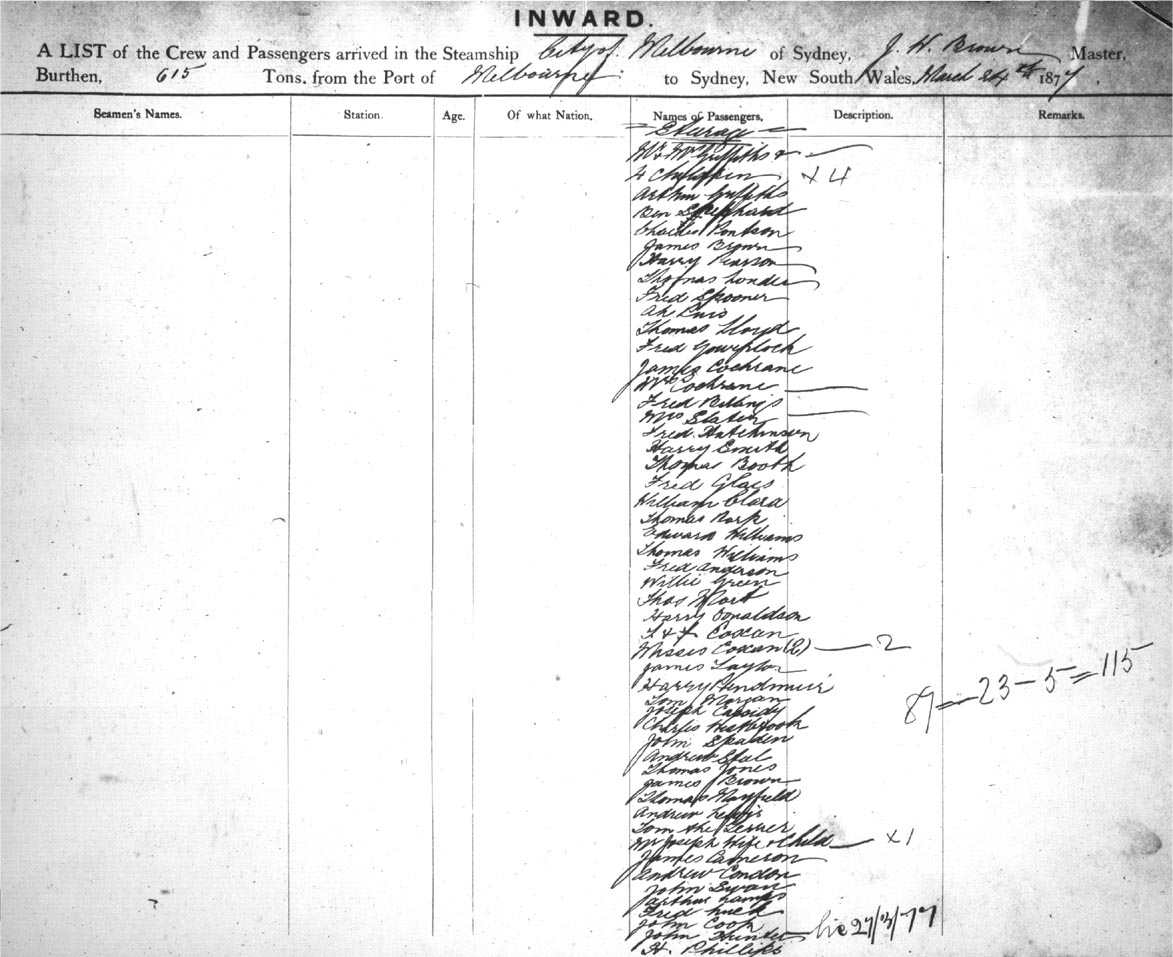 INWARD.
A LIST of the Crew and Passengers arrived in the Steamship City of Melbourne of Sydney, J. W. Brown Master,
Burthen, 615 Tons, from the Port of Melbourne to Sydney, New South Wales, March 24th 1877.
Seamen's Names. Station. Age. Of what Nation. Names of Passengers, Description. Remarks.
Mr & Mrs Griffiths &
4 Children × 4
Arthur Griffiths
Ben Shephard
Charles
James Brown
Harry Pearson
Thomas
Fred Spooner
Ah
Thomas Lloyd
Fred
James Cochrane
Mrs Cochrane
Fred Billings
Mrs Slater
Fred Hutchinson
Harry Smith
Thomas Booth
Fred Glass
William Clara
Thomas
Edward Williams
Thomas Williams
Fred Anderson
Willie Green
Thos Mort
Harry Donaldson
Coxan
Misses Coxan (2) 2
James Taylor
Harry
Tom Morgan
Joseph Cassidy
Charles
John
Andrew
Thomas Jones
James Brown
Thomas Mayfield
Andrew Lewis
Tom the
Mr Joseph Wife & Child × 1
James Cameron
Andrew Condon
John Swan
Arthur
Fred
John Cook
John Hunter 27/3/77
H. Phillips
87 — 23 — 5 = 115